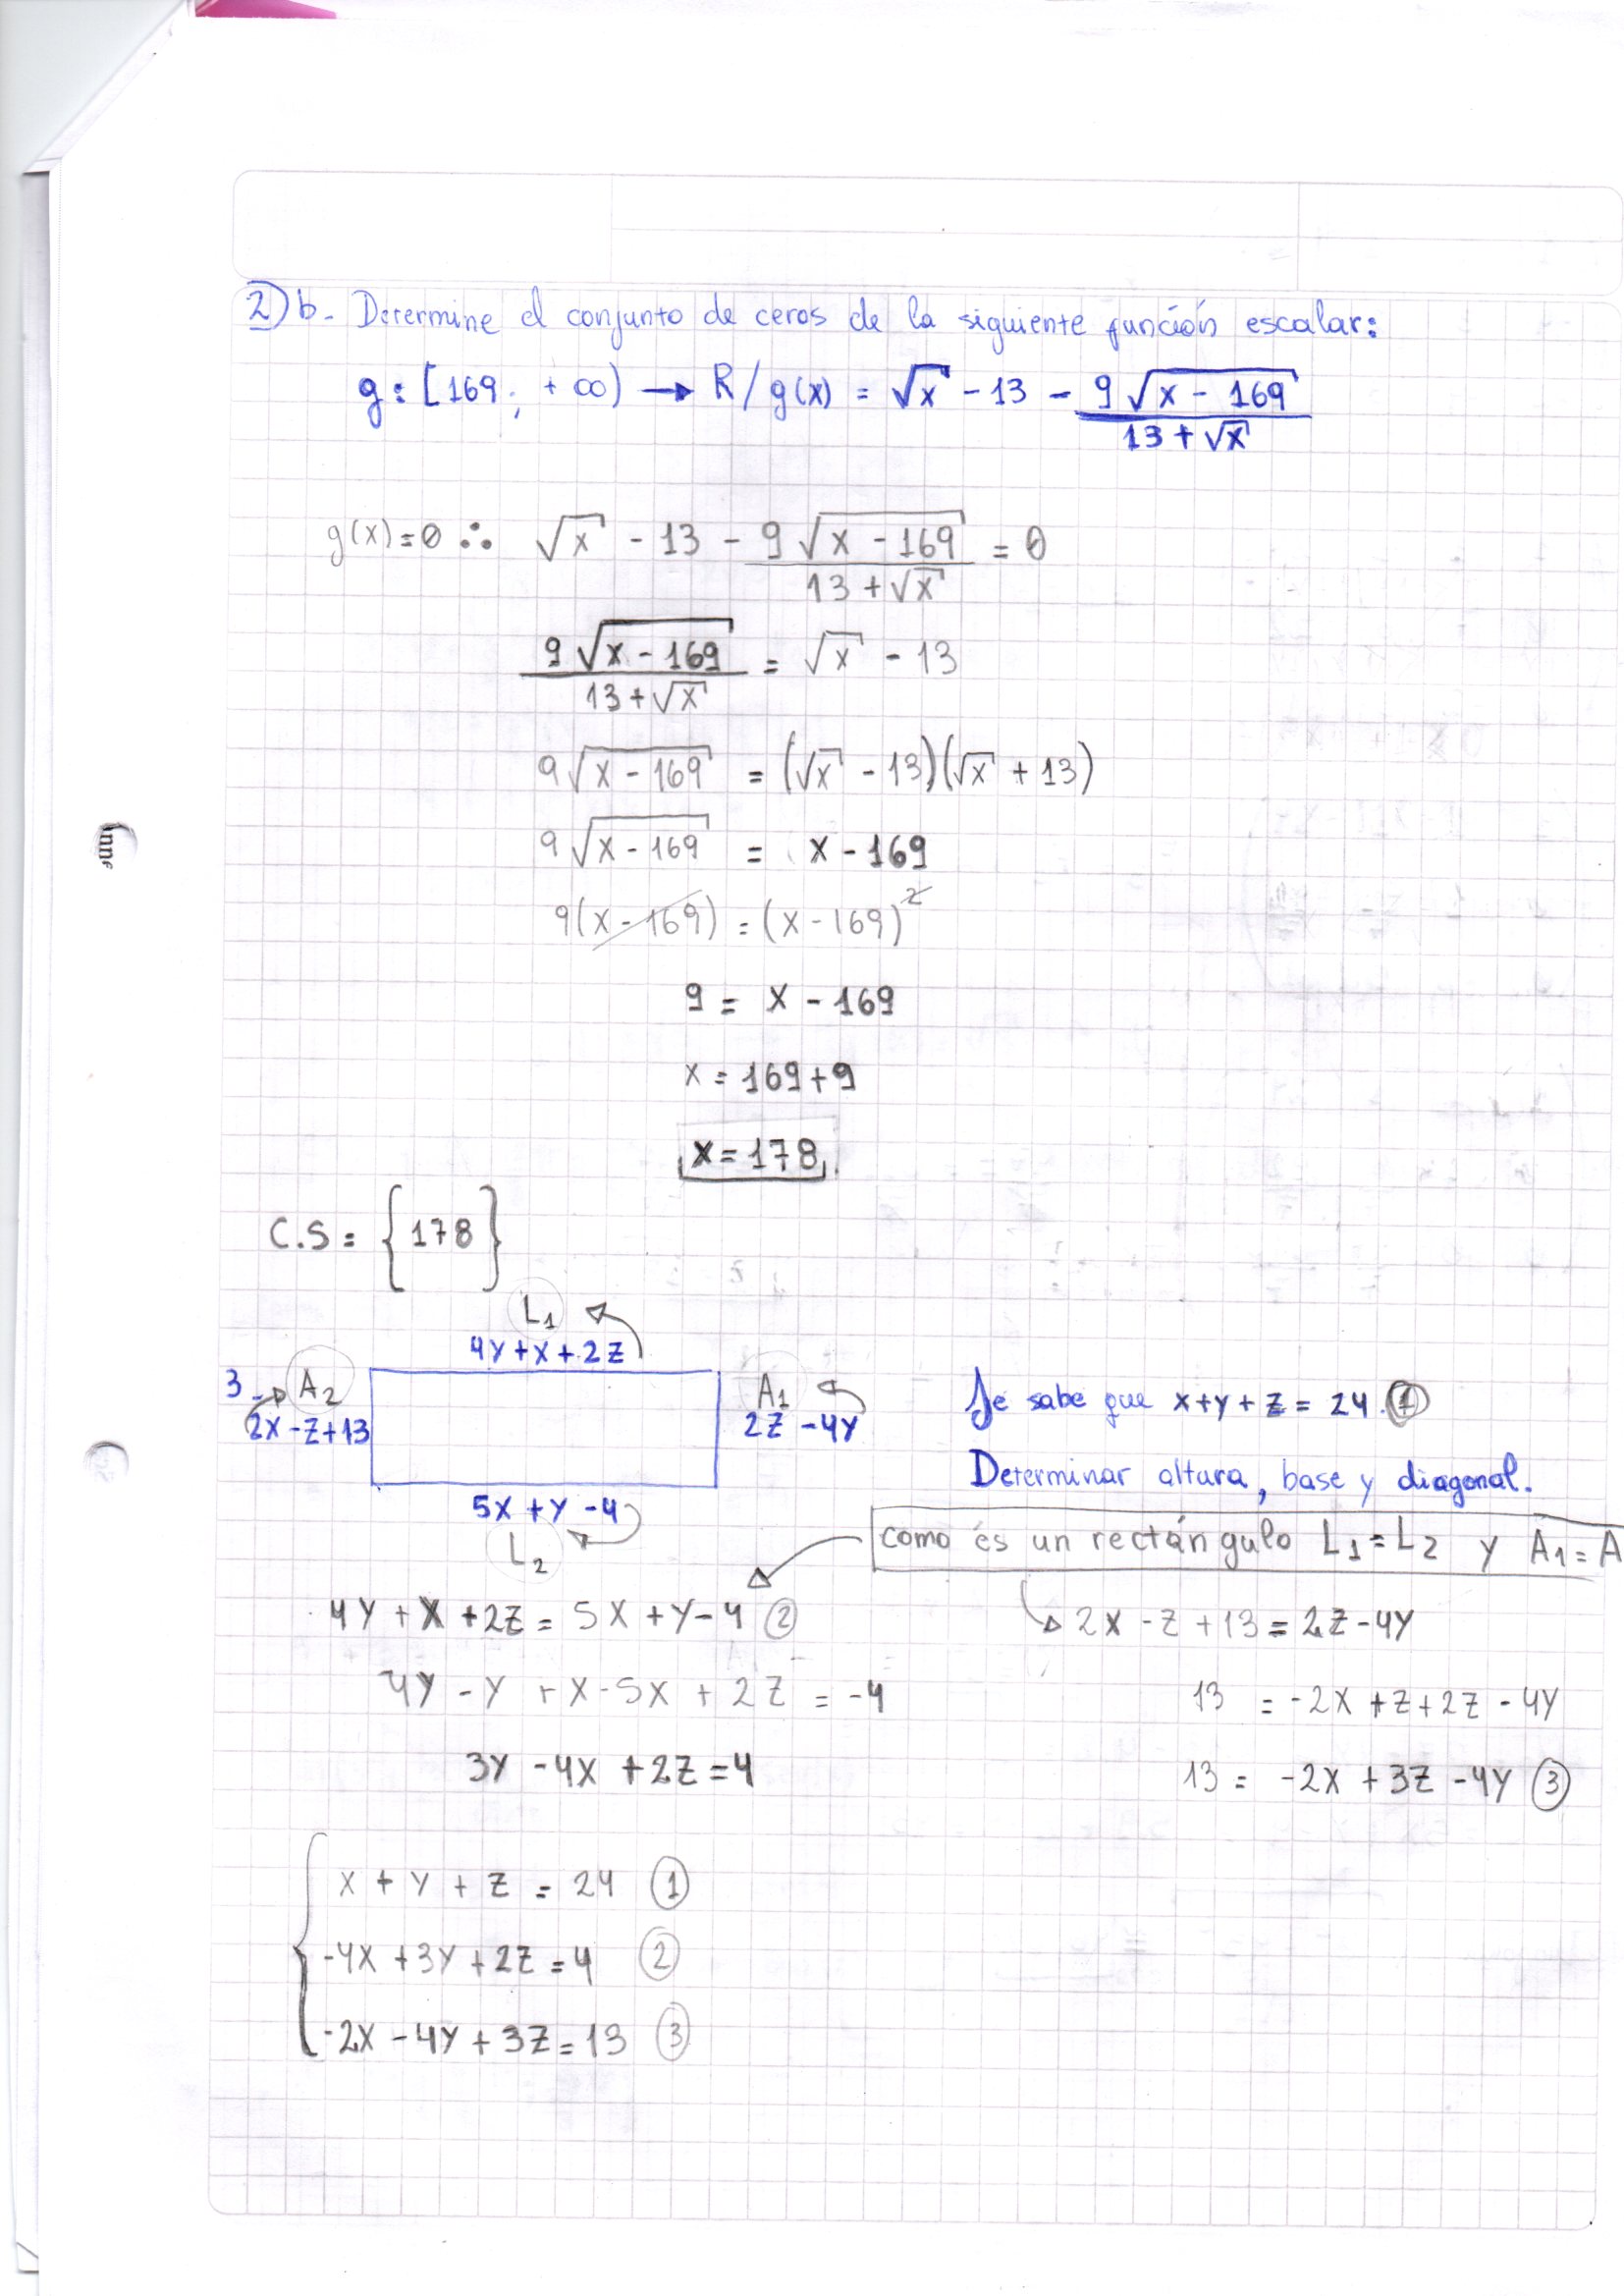 2) b- Determine el conjunto de ceros de la siguiente función escalar:
g: [169; +∞) → R / g(x) = √x - 13 - 9√(x - 169) / (13 + √x)
g(x)=0 ∴ √x - 13 - 9√(x - 169) / (13 + √x) = 0
9√(x - 169) / (13 + √x) = √x - 13
9√(x - 169) = (√x - 13)(√x + 13)
9√(x - 169) = x - 169
9(x - 169) = (x - 169)²
9 = x - 169
x = 169 + 9
x = 178
C.S = {178}
L1
4Y + X + 2Z
3- A2
A1
2X - Z + 13
2Z - 4Y
Se sabe que x + y + z = 24. ①
Determinar altura, base y diagonal.
5X + Y - 4
L2
como és un rectángulo L1 = L2 y A1 = A
4Y + X + 2Z = 5X + Y - 4 ②
2X - Z + 13 = 2Z - 4Y
4Y - Y + X - 5X + 2Z = -4
13 = -2X + Z + 2Z - 4Y
3Y - 4X + 2Z = 4
13 = -2X + 3Z - 4Y ③
X + Y + Z = 24 ①
-4X + 3Y + 2Z = 4 ②
-2X - 4Y + 3Z = 13 ③